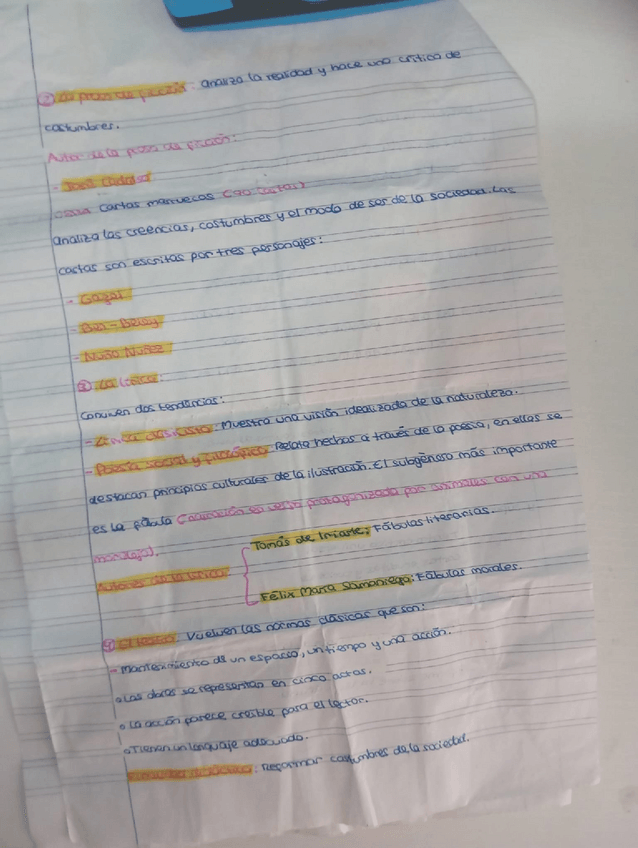 ② La prosa de ficción: analiza la realidad y hace una crítica de
costumbres.
Autor de la prosa de ficción:
- José Cadalso
Cartas marruecas (90 cartas)
analiza las creencias, costumbres y el modo de ser de la sociedad. Las
cartas son escritas por tres personajes:
- Gazel
- Ben-Beley
- Nuño Nuñez
③ La Lírica:
Conviven dos tendencias:
- : Muestra una visión idealizada de la naturaleza.
- Poesía social y filosófica: Relata hechos a través de la poesía, en ellas se
destacan principios culturales de la ilustración. El subgénero más importante
es la fábula (narración en verso protagonizada por animales con una
moraleja).
Tomás de Iriarte: Fábulas literarias.
Autores de la lírica
Félix María Samaniego: Fábulas morales.
④ El teatro: Vuelven las normas clásicas que son:
- Mantenimiento de un espacio, un tiempo y una acción.
• Las obras se representan en cinco actos.
• La acción parece creíble para el lector.
• Tienen un lenguaje adecuado.
: Reformar costumbres de la sociedad.